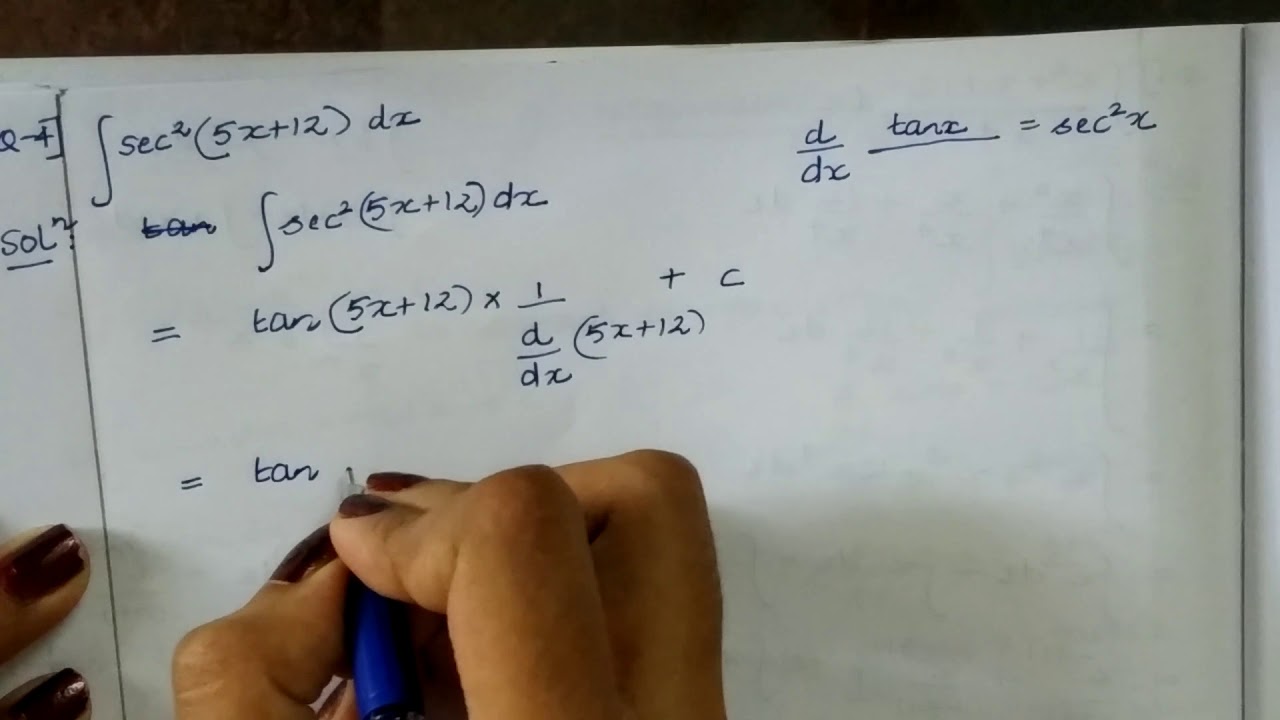 Q-4] ∫ sec²(5x+12) dx
d/dx tanx = sec²x
Solⁿ: tan ∫ sec²(5x+12) dx
= tan(5x+12) × 1/(d/dx (5x+12)) + c
= tan